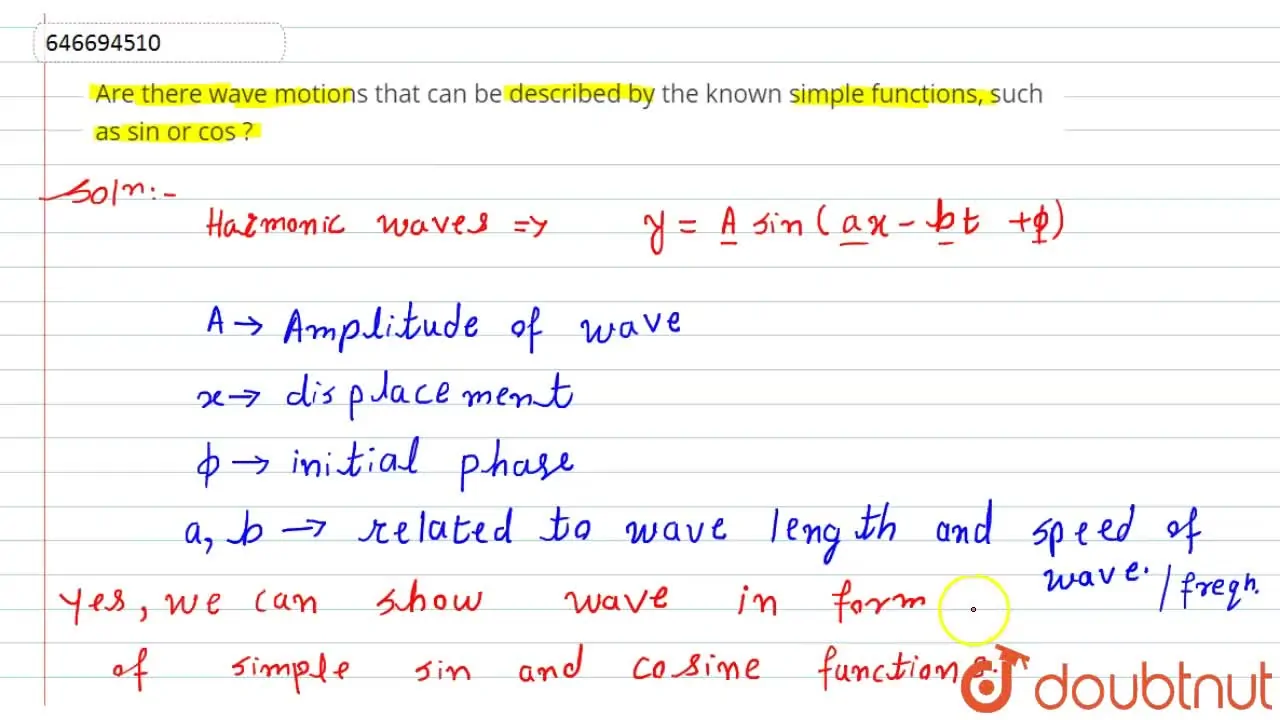 646694510
Are there wave motions that can be described by the known simple functions, such
as sin or cos ?
Soln:-
Harmonic waves => y = A sin( ax - bt + ϕ)
A → Amplitude of wave
x → displacement
ϕ → initial phase
a, b → related to wave length and speed of
wave. / freqn.
yes, we can show wave in form
of simple sin and cosine functions.
doubtnut